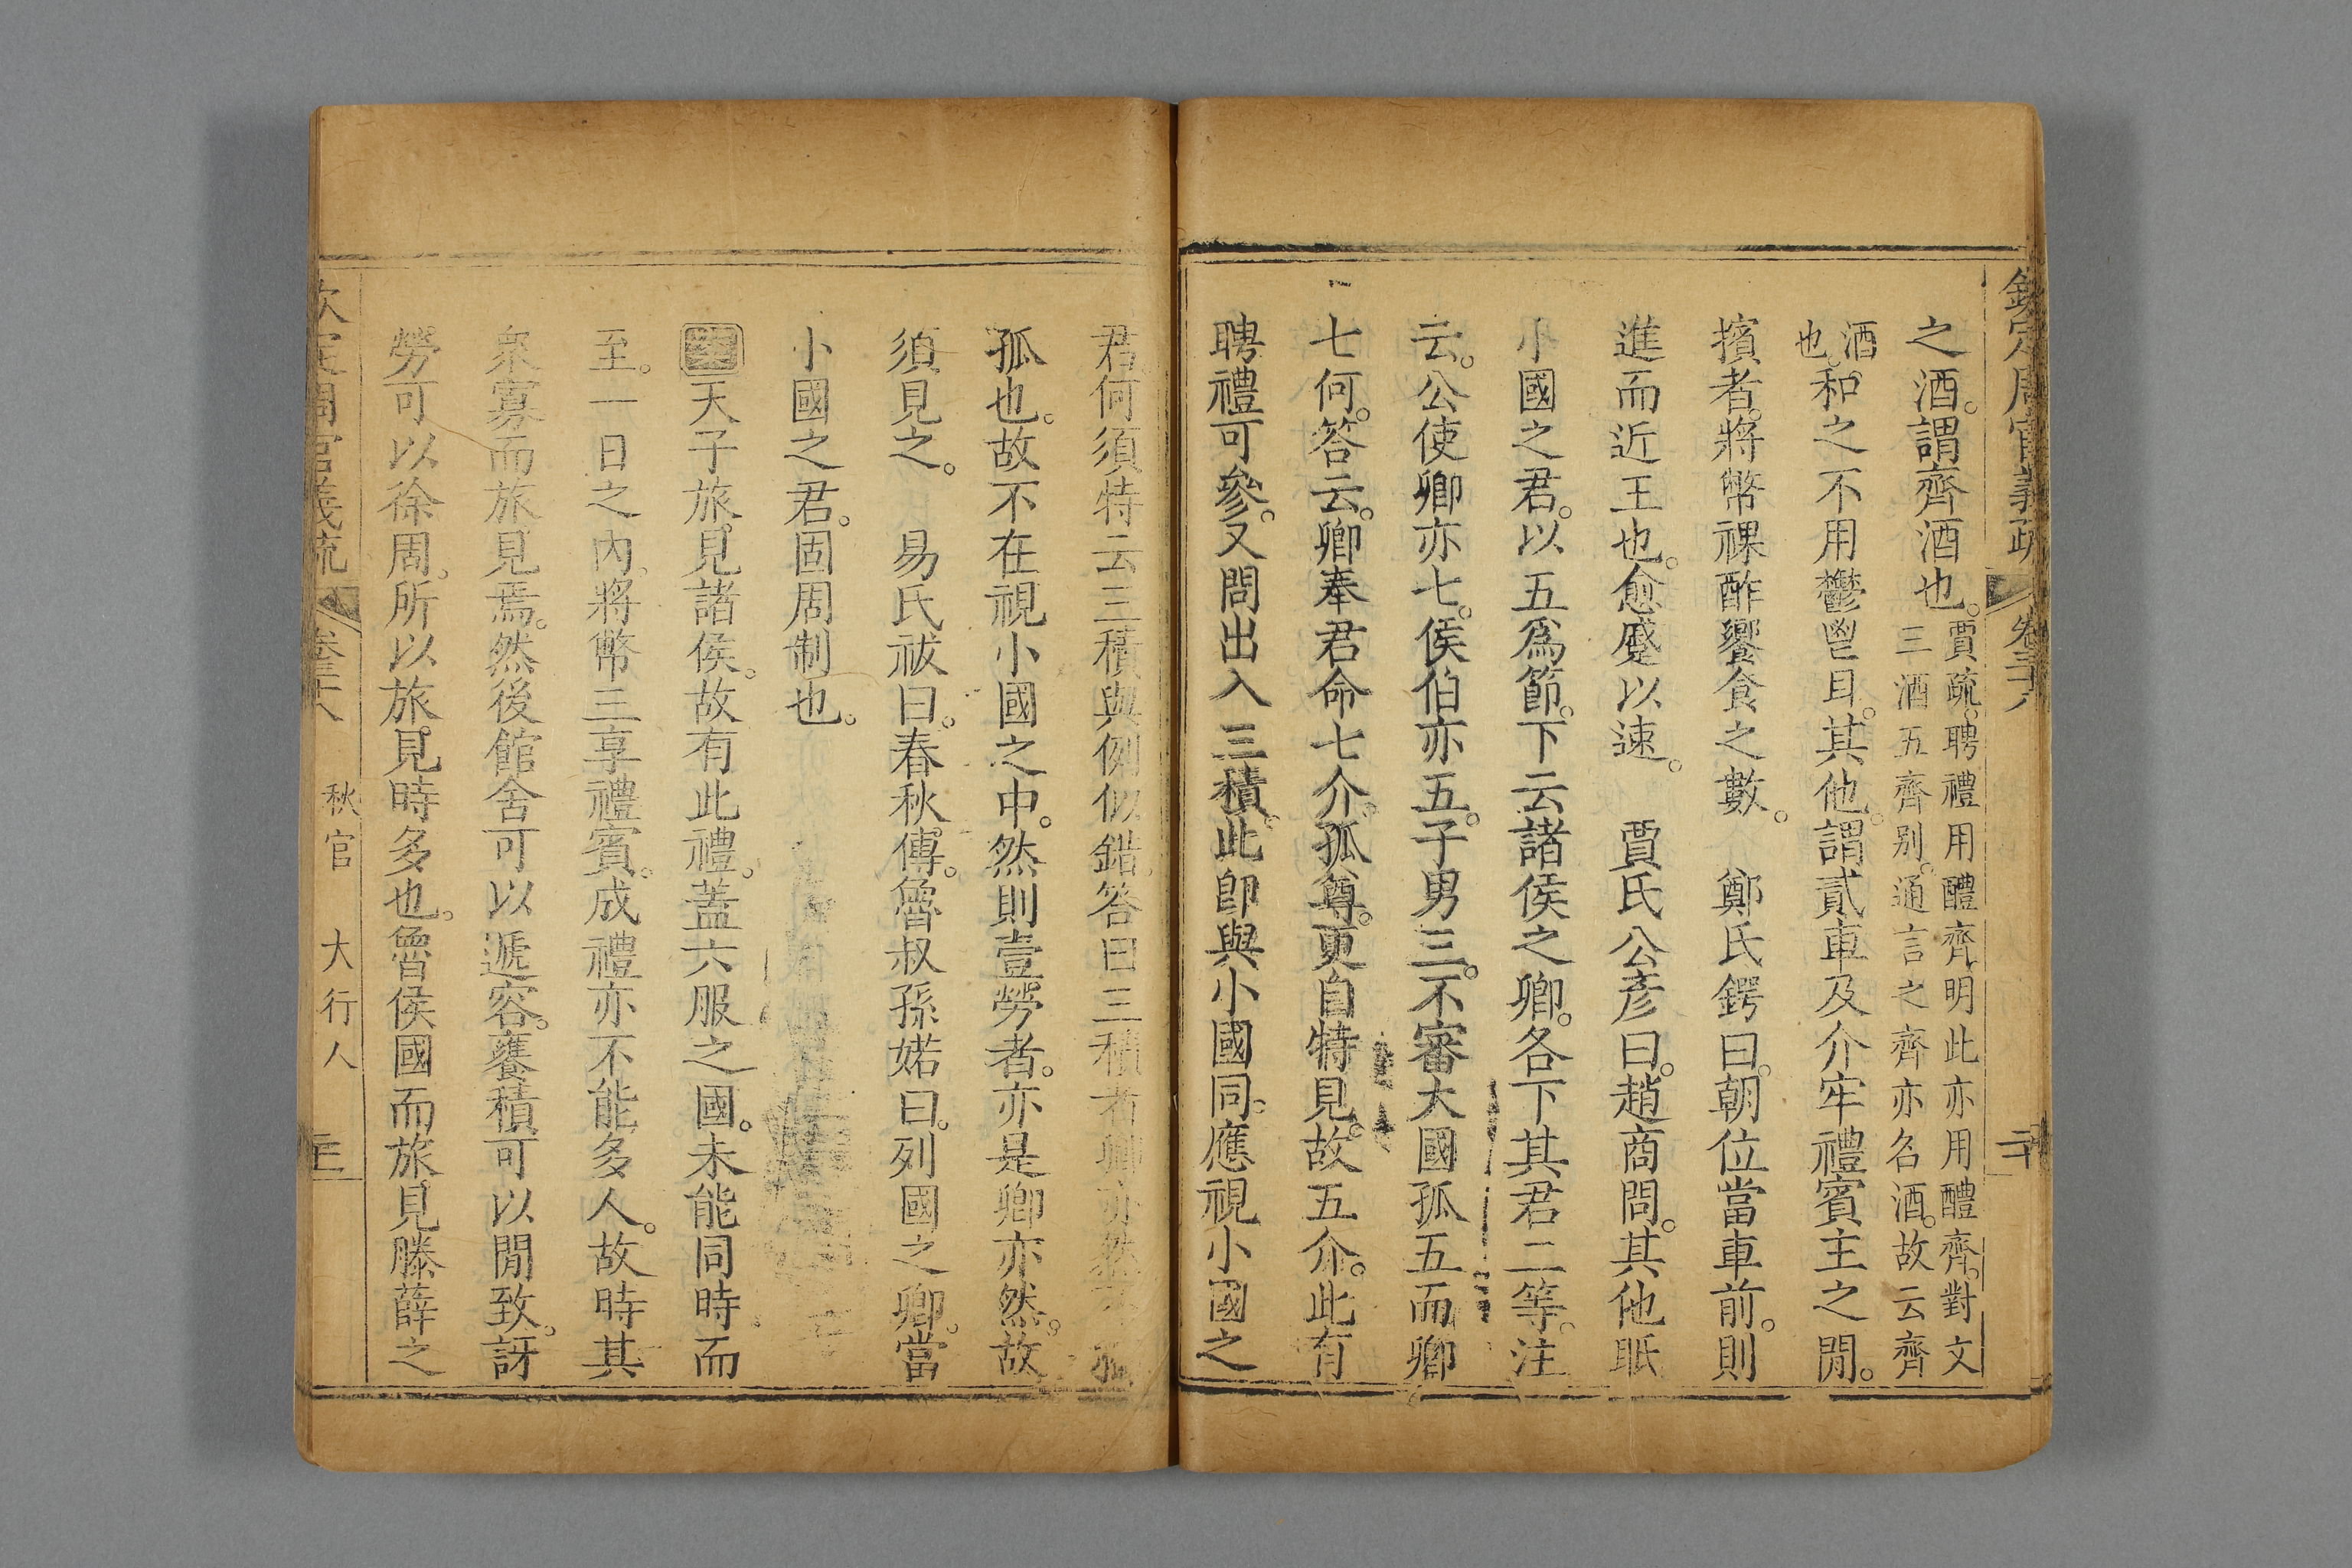 欽定周官義疏 卷三十八
之酒。謂齊酒也。賈疏。聘禮用醴齊。明此亦用醴齊。對文
三酒五齊別。通言之齊亦名酒。故云齊
酒也。和之不用鬱鬯耳。其他。謂貳車及介牢禮賓主之閒。
擯者。將幣祼酢饗食之數。 鄭氏鍔曰。朝位當車前。則
進而近王也。愈蹙以速。 賈氏公彥曰。趙商問。其他眡
小國之君。以五爲節。下云諸侯之卿。各下其君二等。注
云。公使卿亦七。侯伯亦五。子男三。不審大國孤五而卿
七何。答云。卿奉君命七介。孤尊。更自特見。故五介。此有
聘禮可參。又問出入三積。此卽與小國同。應視小國之
君。何須特云三積與例似錯。答曰三積者卿亦然
孤也。故不在視小國之中。然則壹勞者。亦是卿亦然。故
須見之。 易氏祓曰。春秋傳。魯叔孫婼曰。列國之卿。當
小國之君。固周制也。
天子旅見諸侯。故有此禮。蓋六服之國。未能同時而
至。一日之內。將幣三享禮賓。成禮亦不能多人。故時其
衆寡而旅見焉。然後館舍可以遞容。饔積可以閒致。訝
勞可以徐周。所以旅見時多也。魯侯國而旅見滕薛之
欽定周官義疏 卷三十八 秋官 大行人